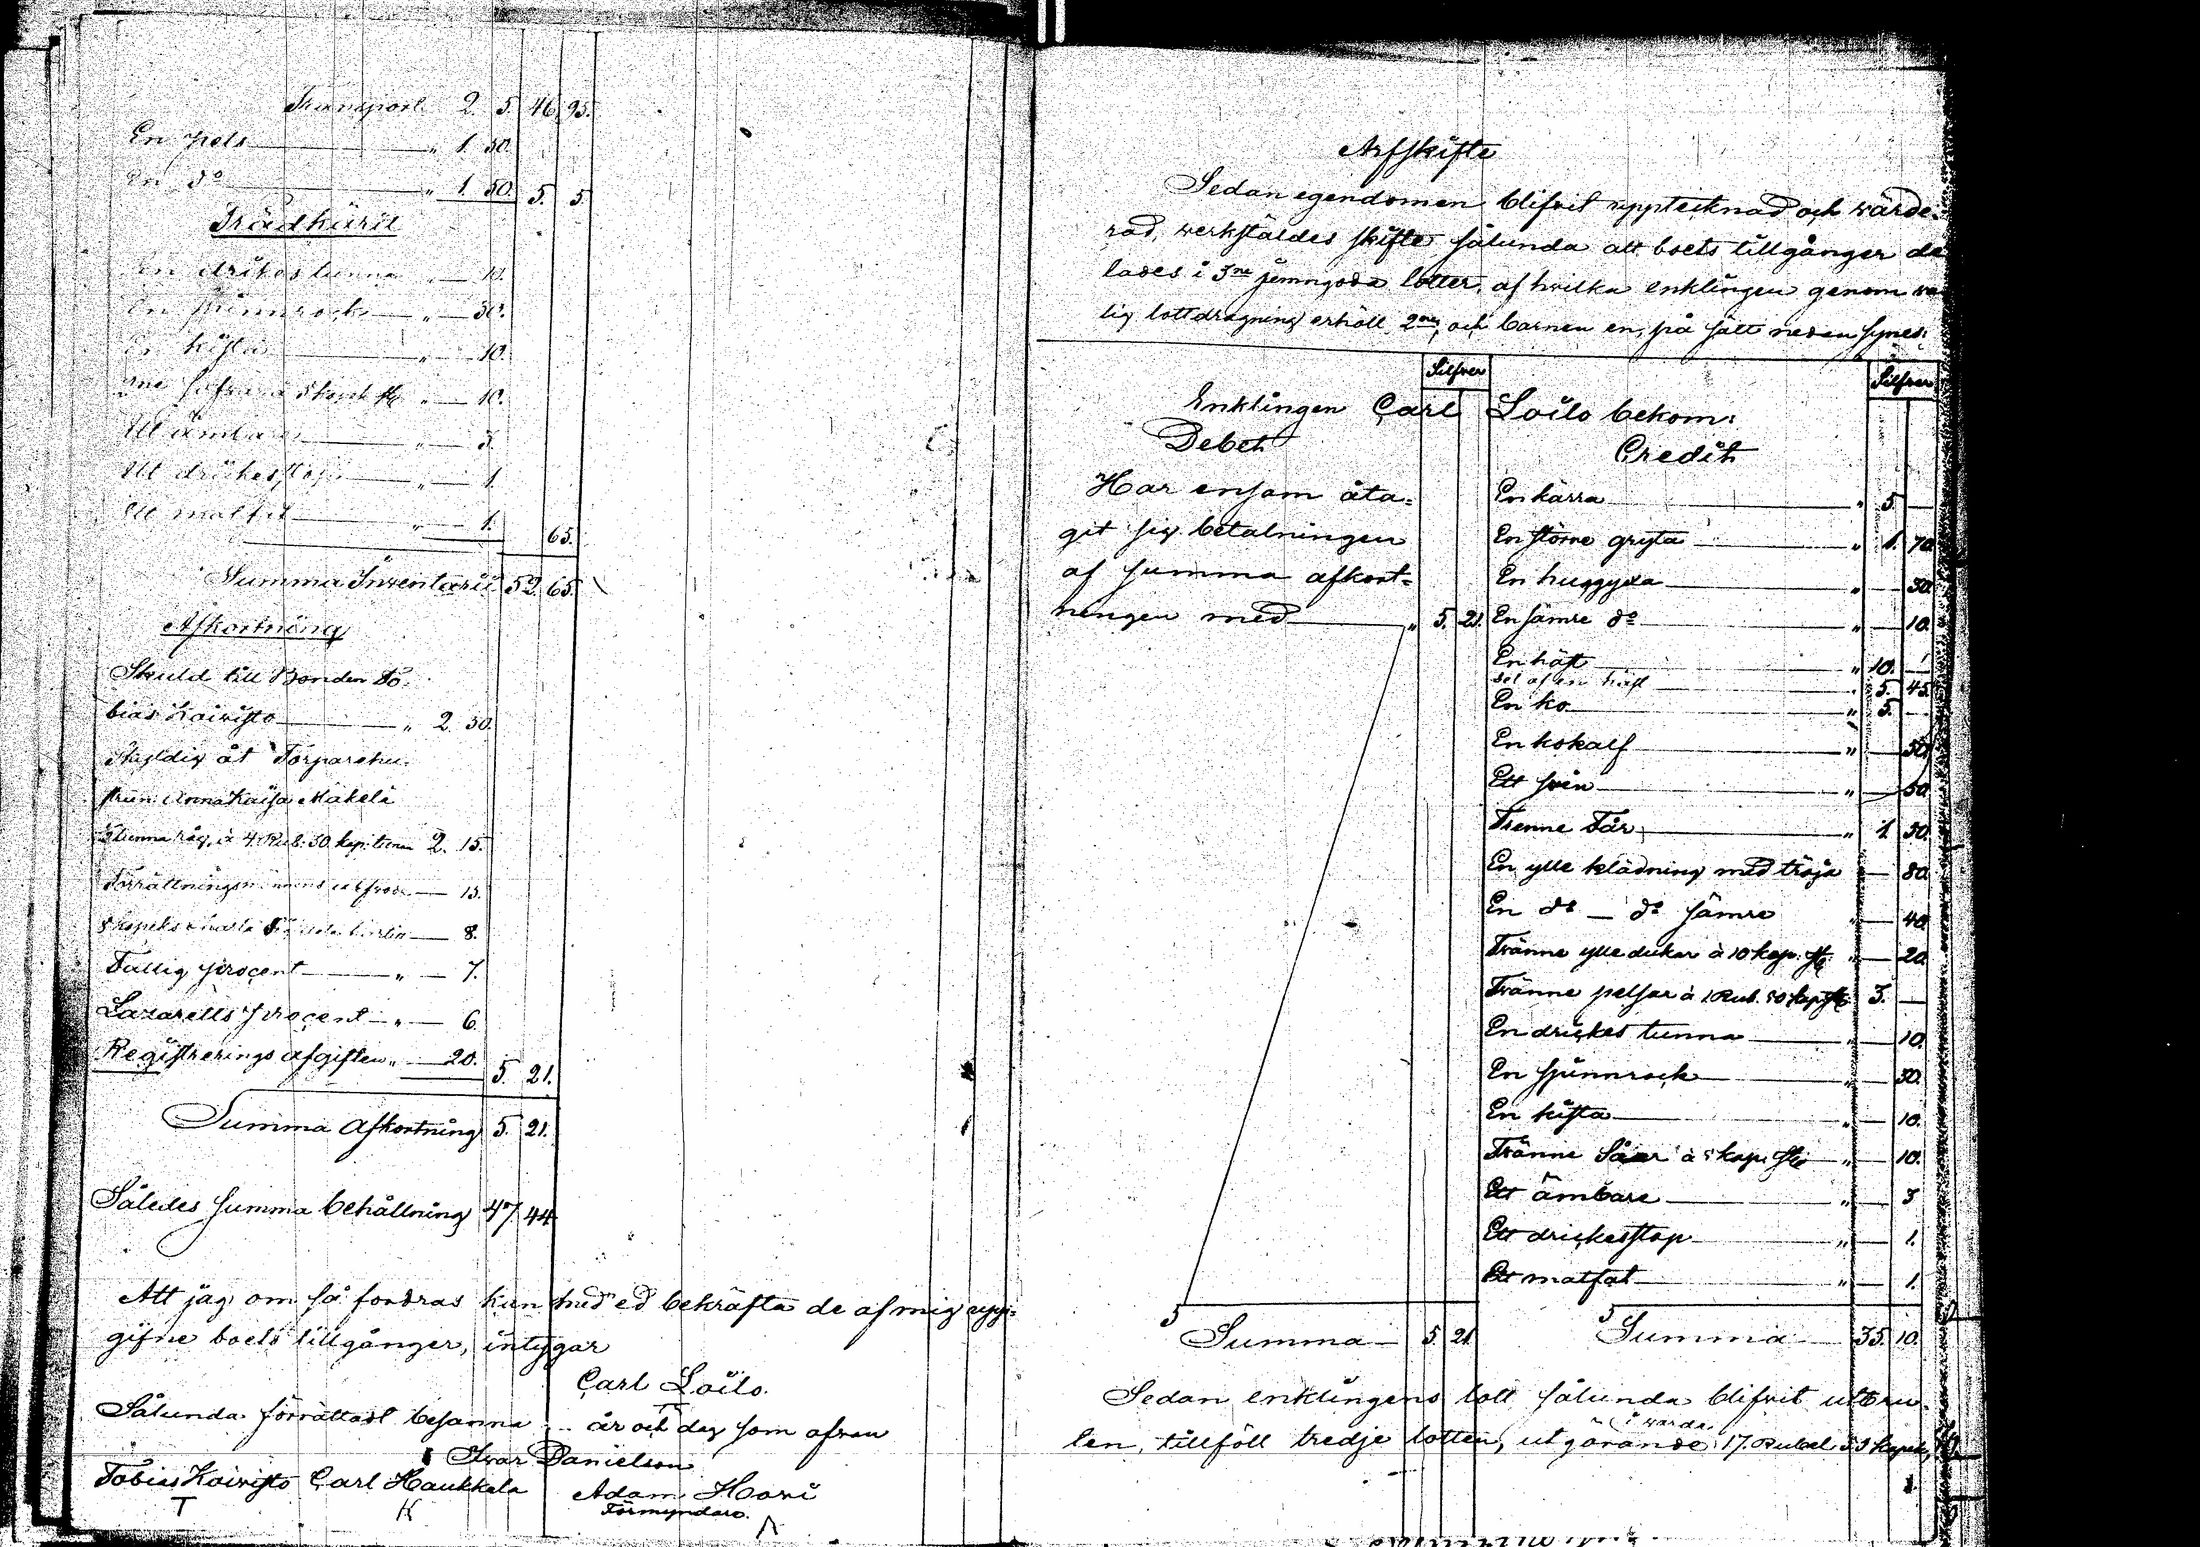 Transport 2 5. 46 95.
En pels " 1. 50.
En do " 1. 50. 5. 5.
Trädkäril
En drikes tunna " 10.
En spinnrock " 30.
En kista " 10.
10.
Ett ämbare " 3.
Ett drickesstop " 1.
Ett matfat " 1. 65.
Summa Inventarii 52. 65.
Afkortning
Skuld till Bonden To-
bias Koivisto " 2. 50.
Skyldig åt Torparehu-
strun Anna Kaisa Mäkelä
tunna råg, à 4. Rub. 30 kop. tunnan 2. 15.
15.
8.
Fattig procent " 7.
Lazaretts procent " 6.
Registrerings afgiften " 20. 5. 21.
Summa Afkortning 5. 21.
Således summa behållning 47 44
Att jag om så fordras kan med ed bekräfta de af mig upp-
gifne boets tillgånger, intygar
Carl Loilo.
Sålunda förrättadt besanna år och dag som ofvan
Ivar Danielson
Tobias Koivisto Carl Haukkala Adam Hovi
T K Förmyndare.
Arfskifte
Sedan egendomen blifvit uppteiknad och värde-
rad, verkstäldes skifte sålunda att boets tillgånger de
lades i 3ne jemngoda lotter, af hvilka enklingen genom
lig lottdragning erhöll 2ne, och barnen en, på sätt nedan synes:
Silfver Silfver
Enklingen Carl Loilo bekom:
Debet Credit
Har ensam åta-
git sig betalningen
af summa afkort-
ningen med " 5. 21.
En kärra " 5. —
En större gryta " 1. 70.
En huggyxa " 30.
En sämre do " 10.
En häst " 10. —
Del af en häst " 5. 45.
En ko " 5. —
En kokalf " 50.
Ett svin " 50.
Trenne Får " 1. 50.
En ylle klädning med tröja — 80.
En do — do sämre " 40.
Tvänne ylle dukar à 10 kop. st. " 20.
Tvänne pelsar à 1 Rub. 50 kop. st. 3. —
En drickes tunna " 10.
En spinnrock " 30.
En kista " 10.
Tvänne Såar à 5 kop. st. " 10.
Ett ämbare " 3
Ett drickesstop " 1.
Ett matfat " 1.
Summa 5. 21. Summa 35. 10.
Sedan enklingens lott sålunda blifvit utbru-
i värde
ten, tillföll tredje lotten, utgörande 17. Rubel 55 kopek,